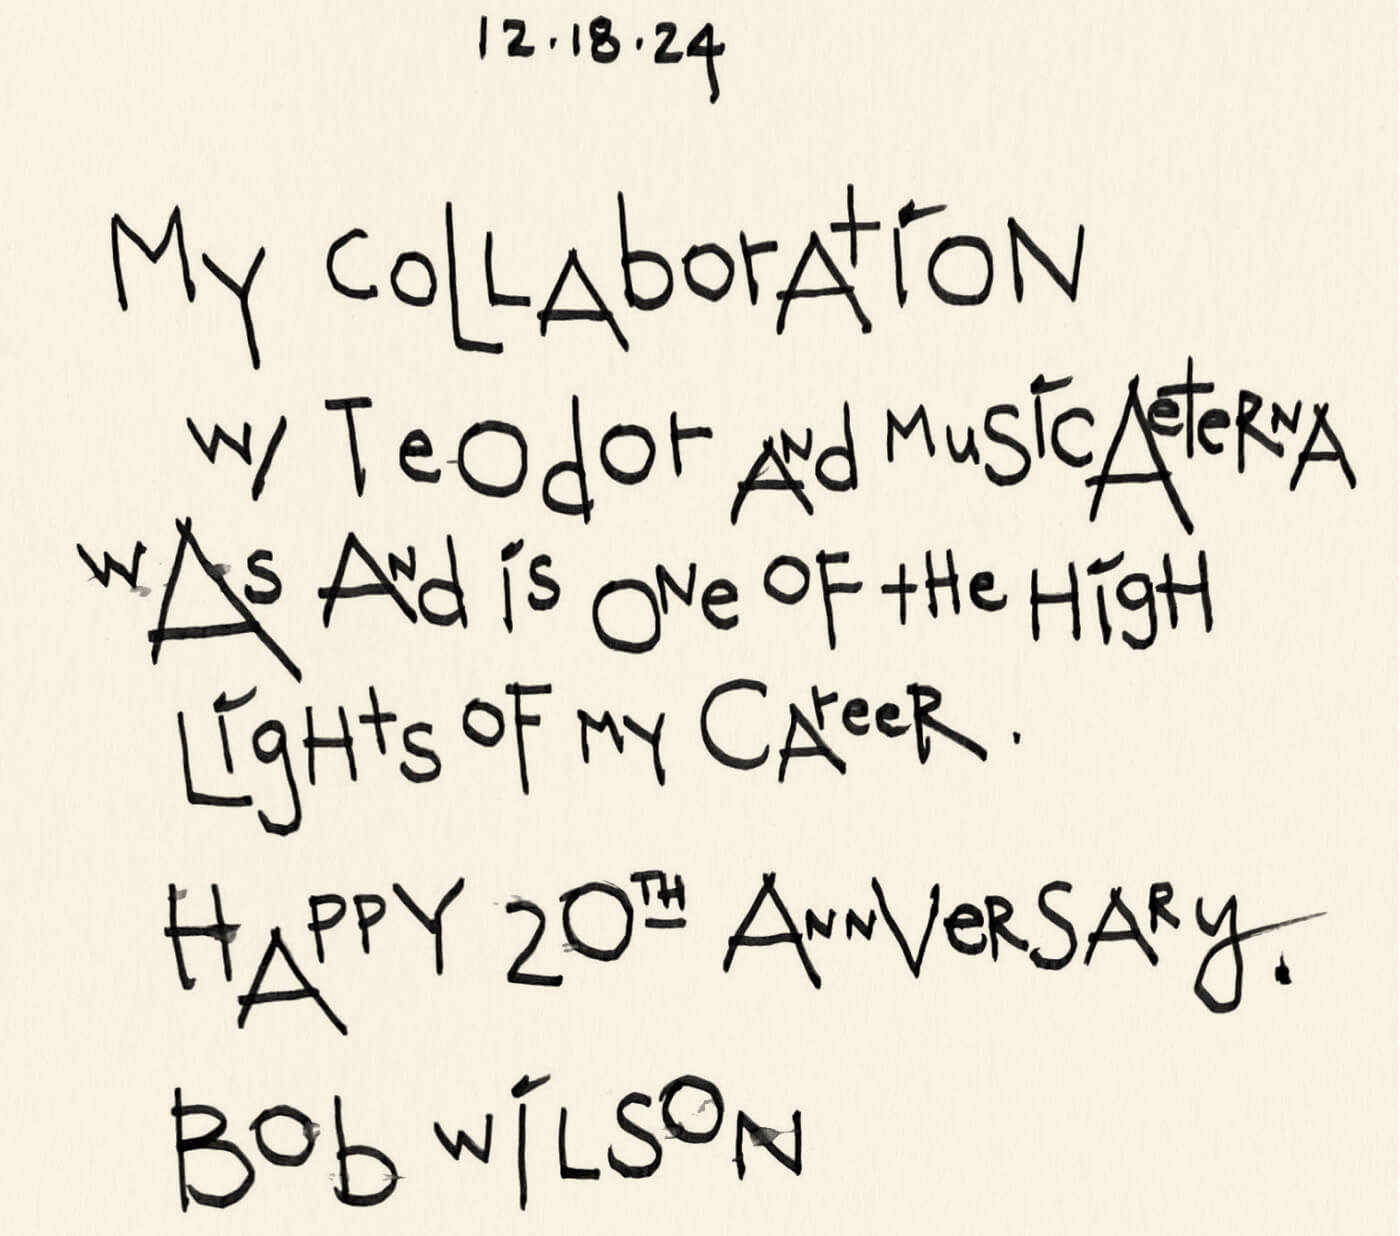 12.18.24
My CoLLAborAtioN
w/ Teodor ANd MusicAeterNA
wAs ANd is ONe OF tHe HigH
LigHts OF MY CAreeR.
HAPPY 20TH ANNVeRSARy.
Bob WiLSON